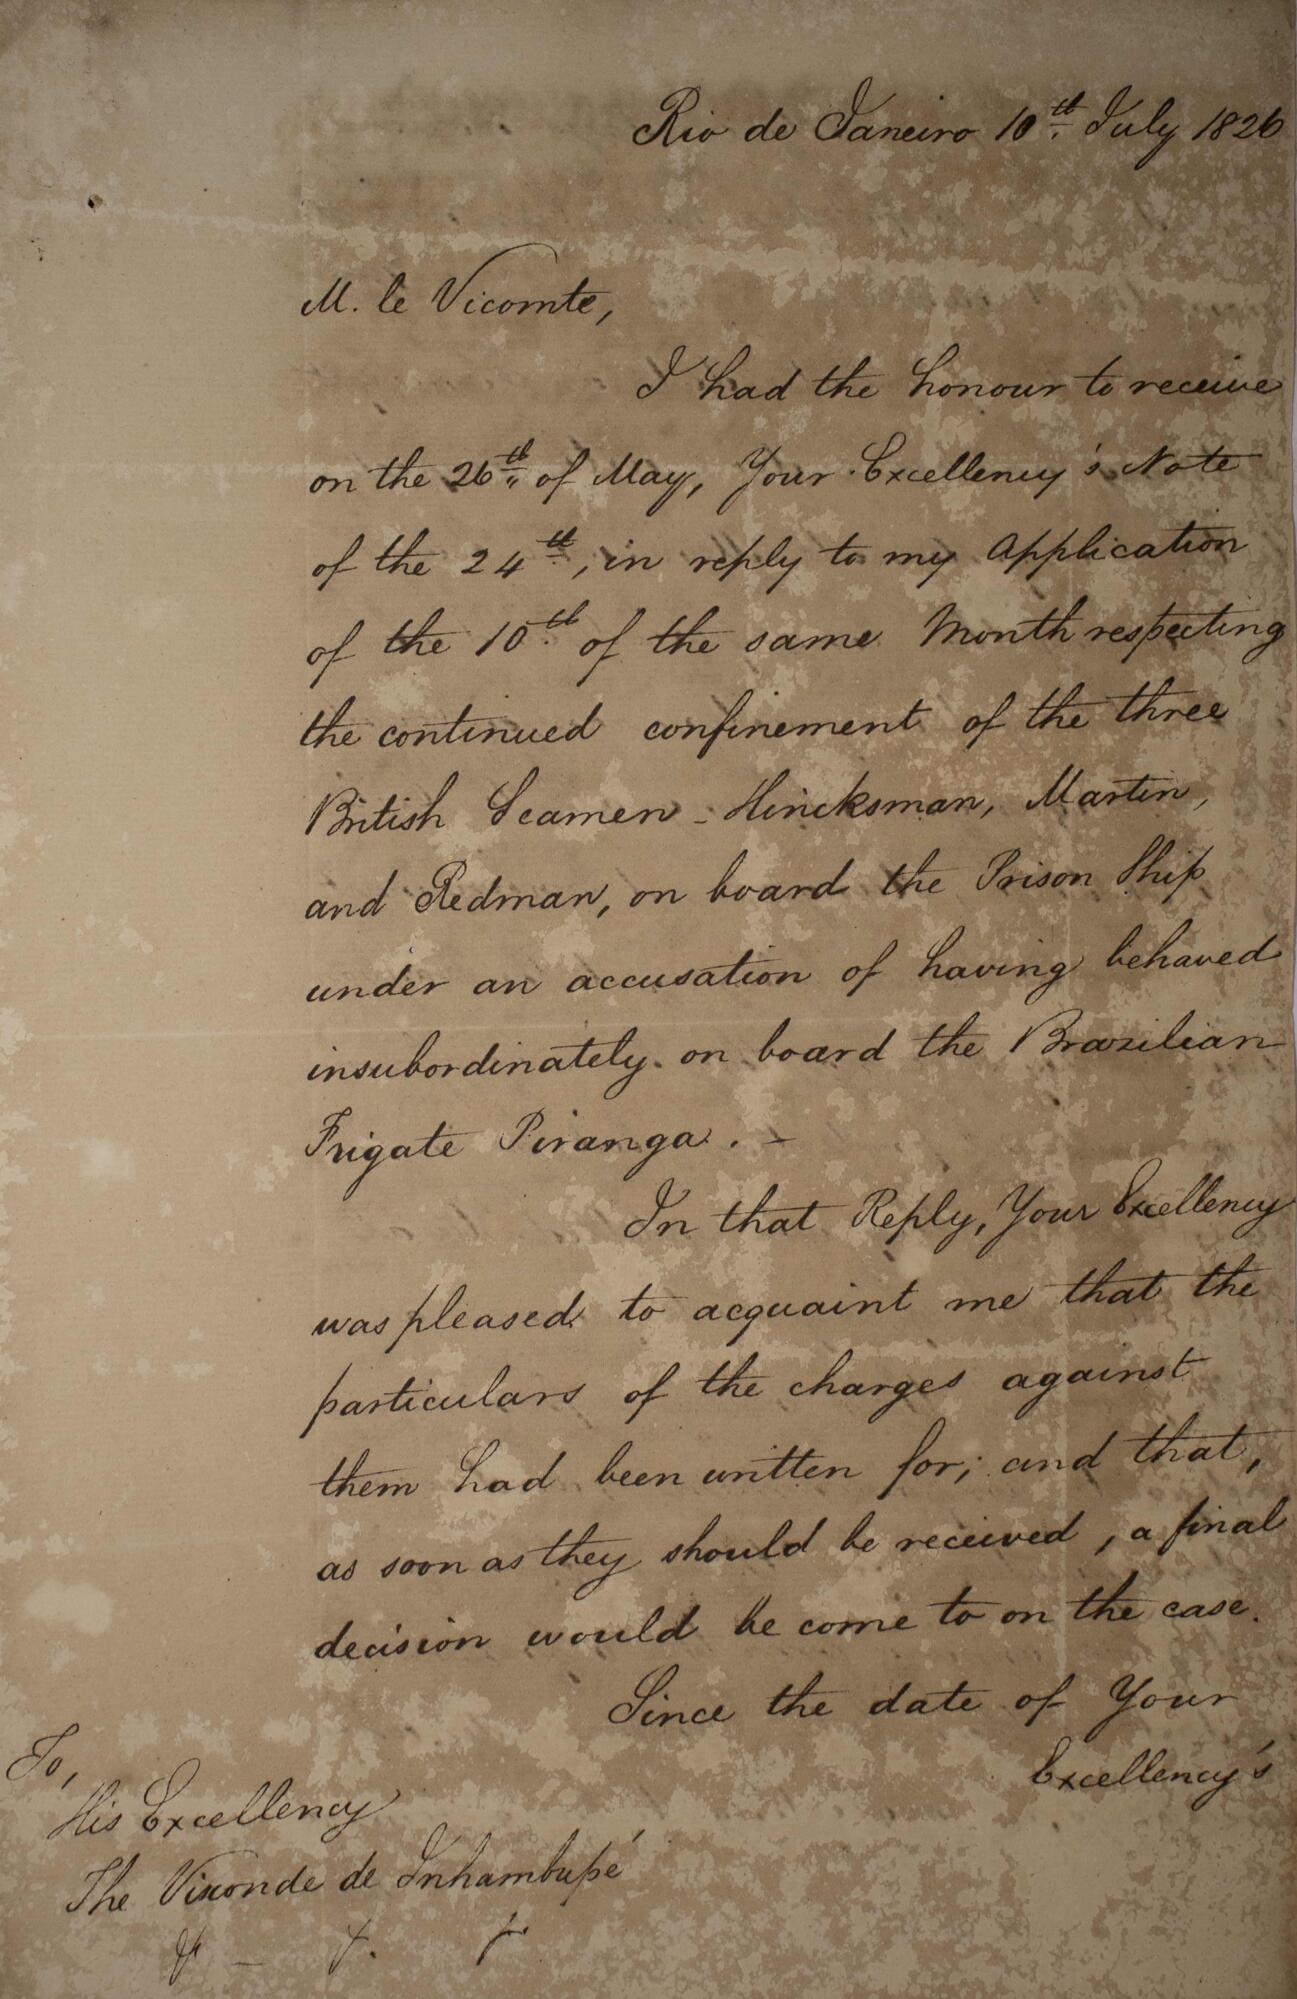 Rio de Janeiro 10th July 1826
M. le Vicomte,
I had the honour to receive
on the 26th of May, Your Excellency's Note
of the 24th, in reply to my Application
of the 10th of the same Month respecting
the continued confinement of the three
British Seamen - Hincksman, Martin,
and Redman, on board the Prison Ship
under an accusation of having behaved
insubordinately on board the Brazilian
Frigate Piranga. -
In that Reply, Your Excellency
was pleased to acquaint me that the
particulars of the charges against
them had been written for; and that,
as soon as they should be received, a final
decision would be come to on the case.
Since the date of Your
Excellency's
To,
His Excellency
The Visconde de Inhambupé